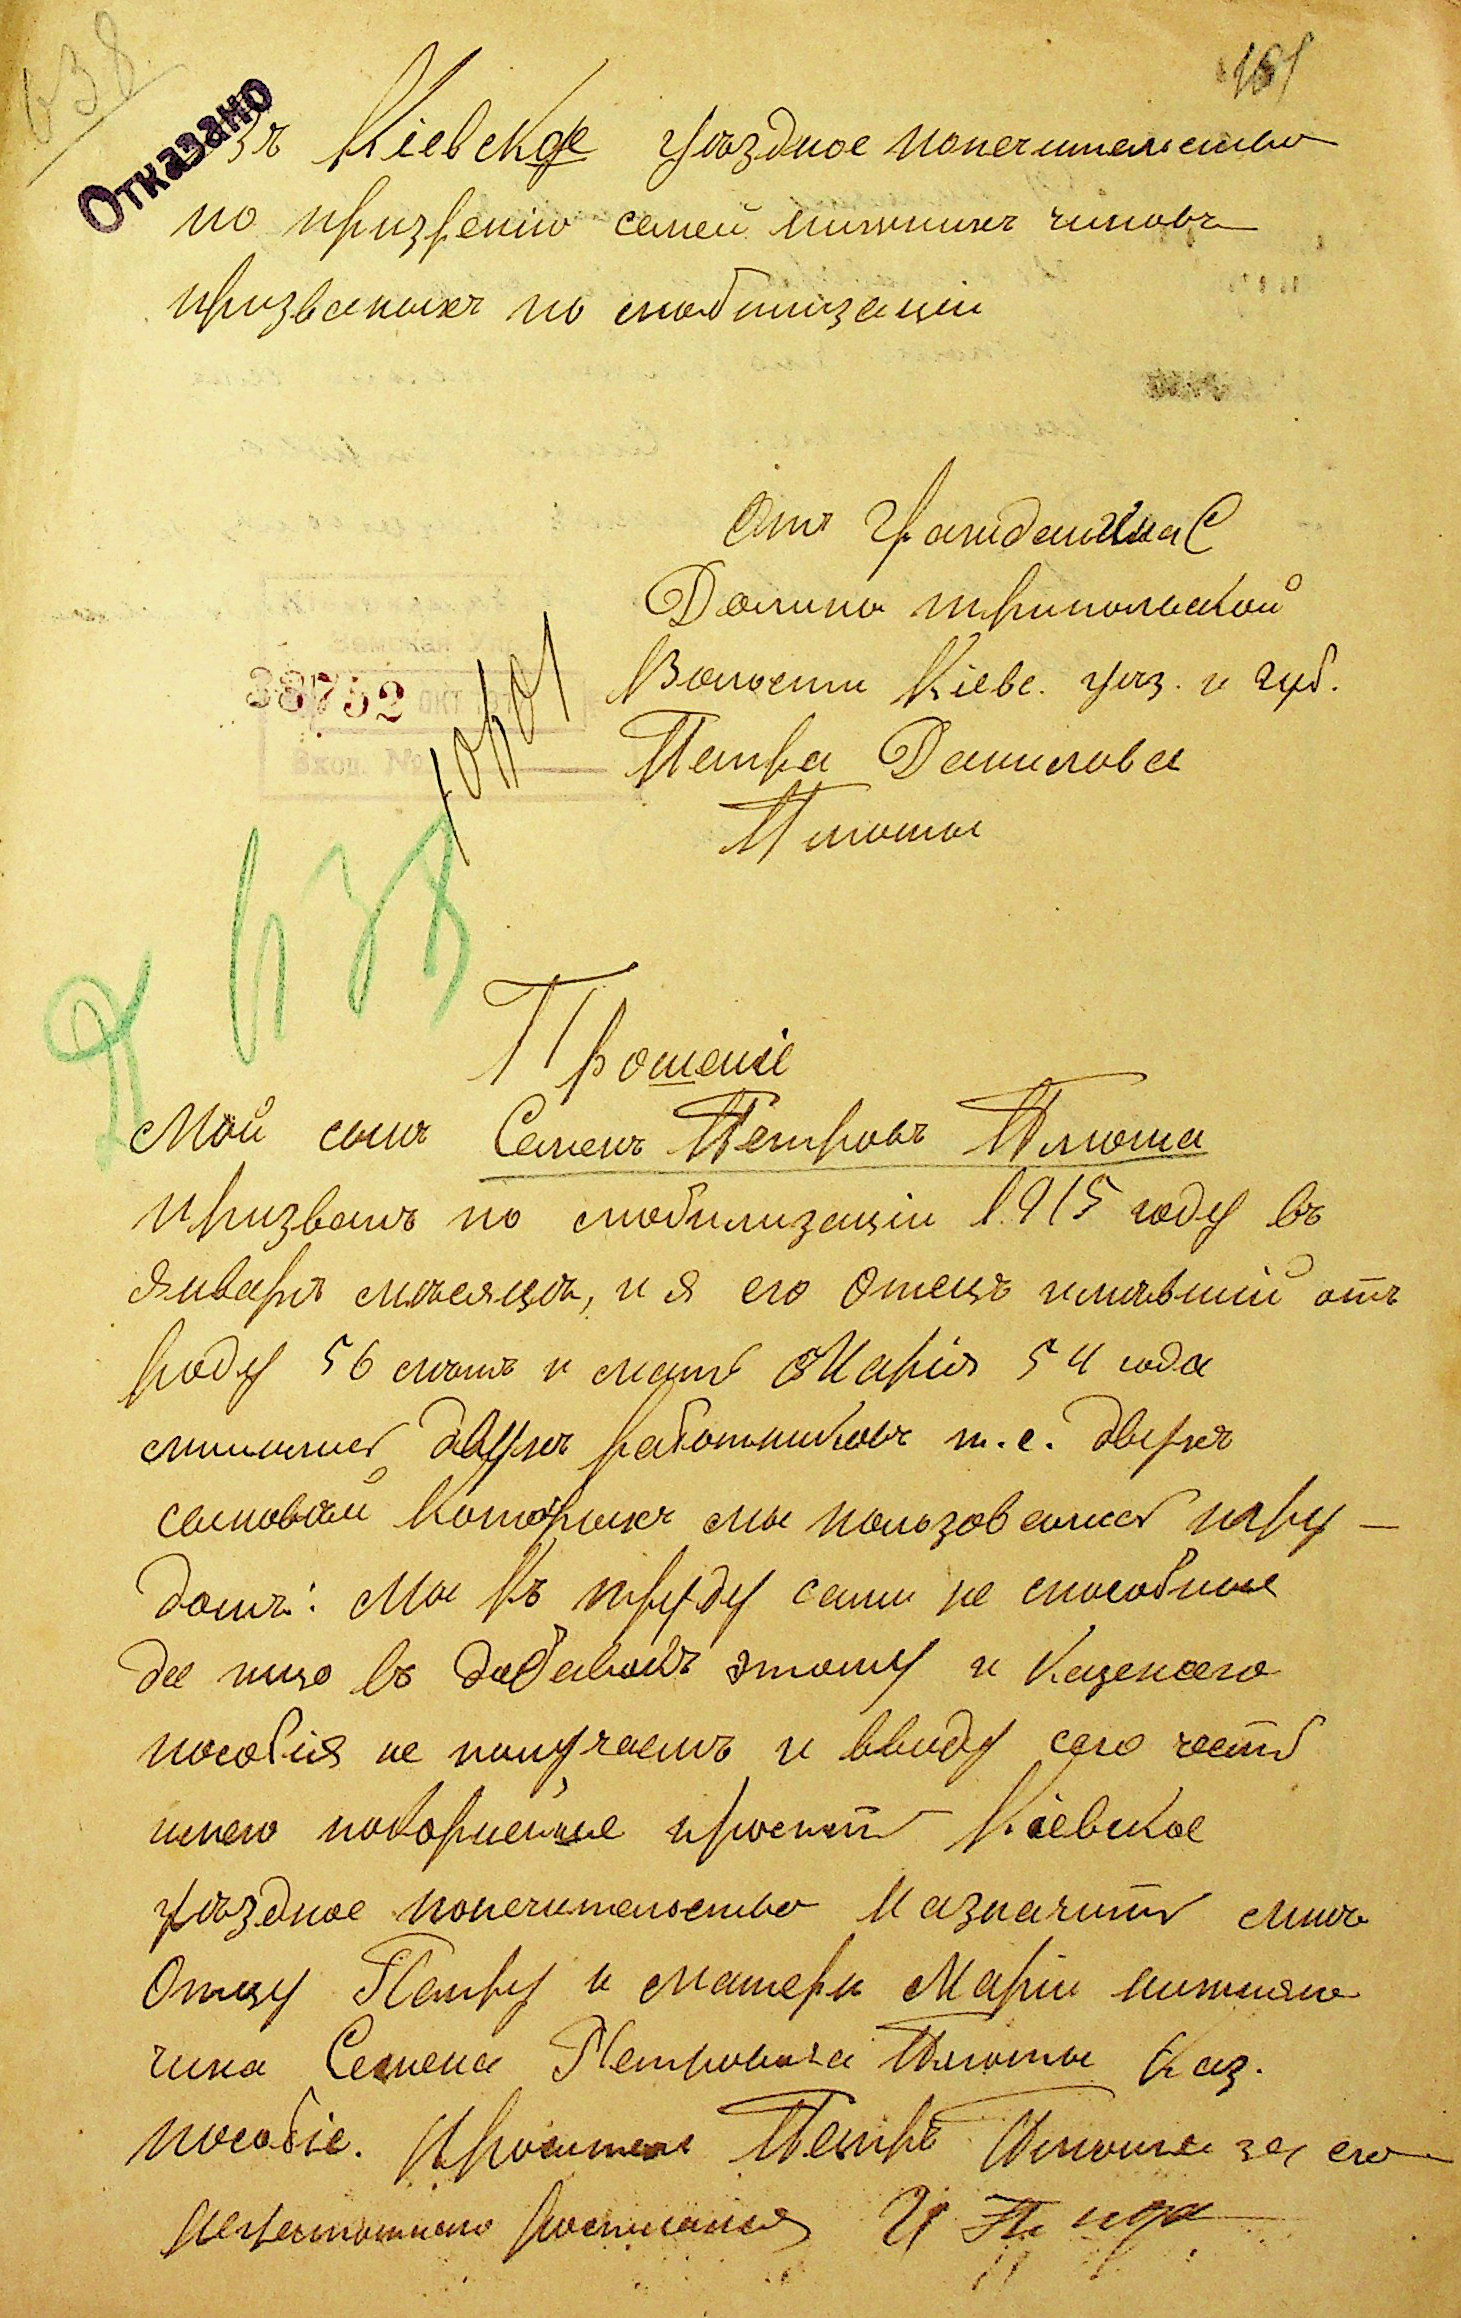 638
181
Отказано
Въ Кіевское уѣздное попечительство
по призрѣнію семей нижнихъ чиновъ
призваныхъ по мобилизаціи
Отъ Гражданина С
Долина трипольской
Волости Кіевс. уѣз. и губ.
Петра Данилова
Плюты
38752
Вход. №
638
Прошеніе
Мой сынъ Семенъ Петровъ Плюта
призванъ по мобилизаціи 1915 году въ
Январѣ мѣсяцѣ, и я его Отецъ имѣвшій отъ
роду 56 лѣтъ и мать Марія 54 года
лишились двухъ работниковъ т.е. двухъ
сыновей которыхъ мы пользовались тру-
домъ: Мы къ труду сами не способные
да ищо въ добавокъ этому и Казеного
пособія не получаемъ и ввиду сего честь
имею покорнейше просить Кіевское
уѣздное попечительство Назначить мнѣ
Отцу Петру и матери Маріи нижняго
чина Семена Петровича Плюты Каз.
пособіе. Проситель Петръ Плюта за его
неграмотнаго росписался